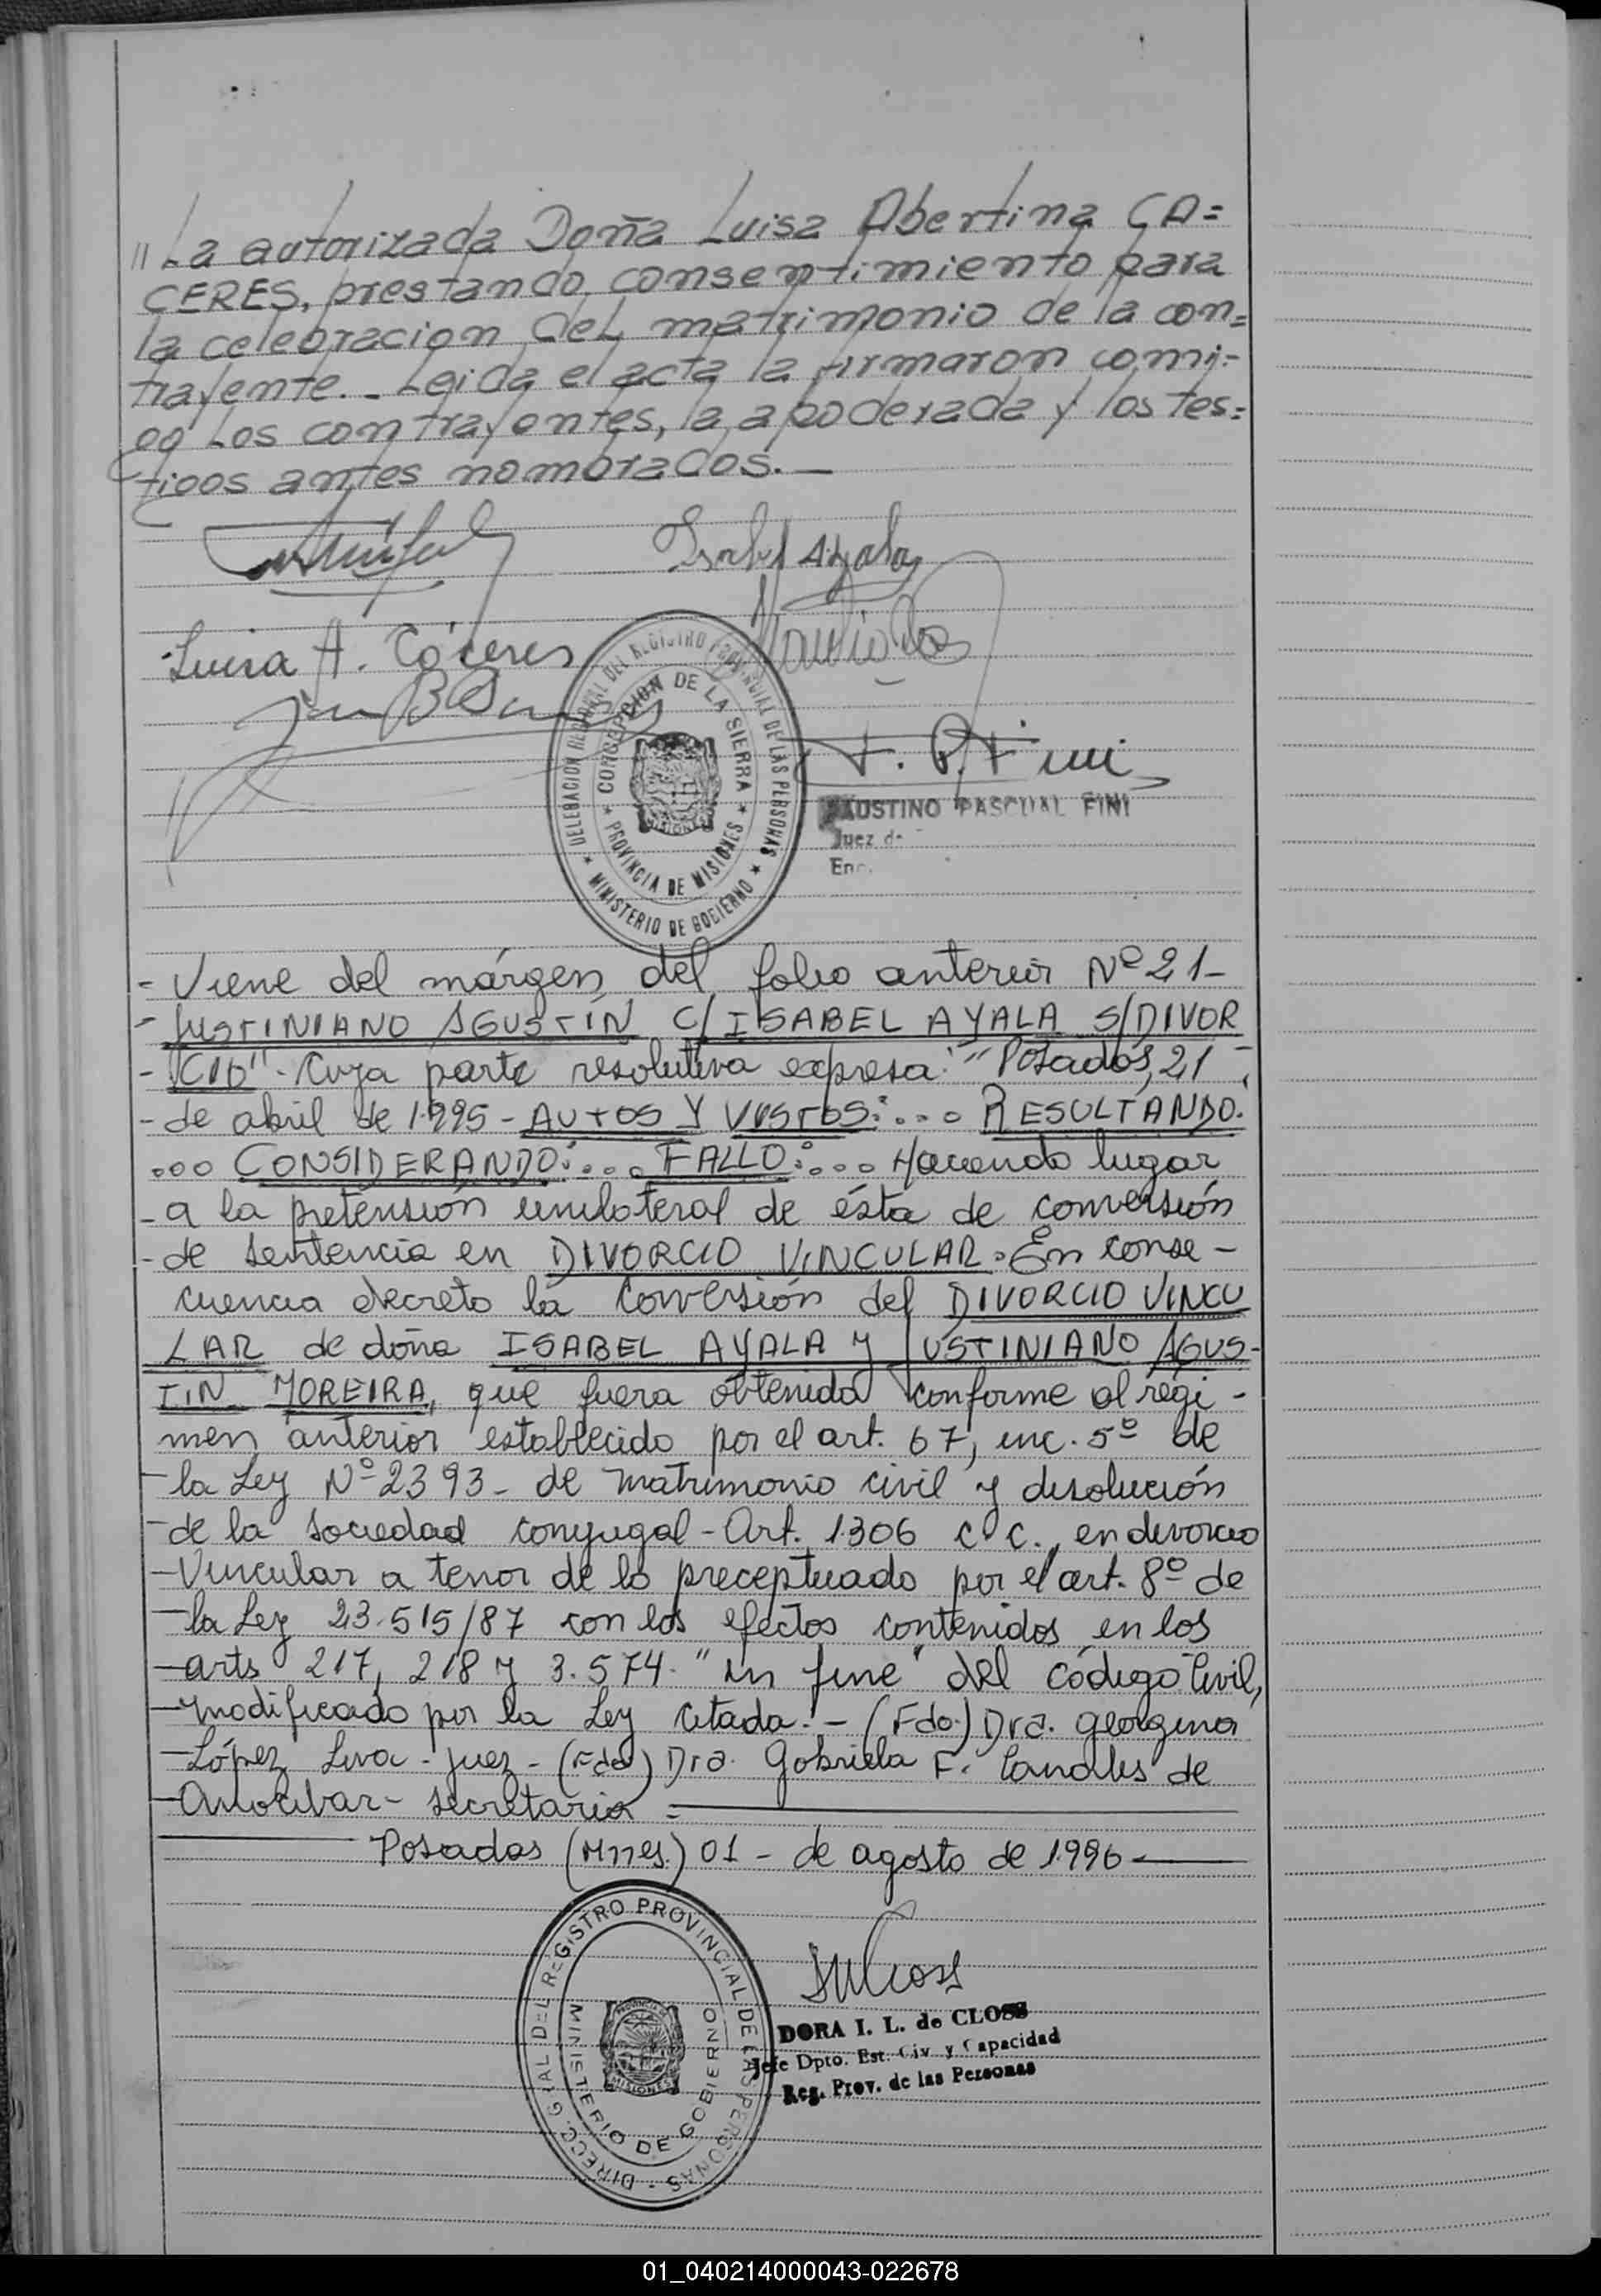 "La autorizada Doña Luisa Abertina CA=
CERES, prestando consentimiento para
la celebracion del matrimonio de la con=
trayente. - Leida el acta la firmaron comi-
go los contrayentes, la apoderada y los tes=
tigos antes nombrados. -
Isabel Ayala
Luisa A. Cáceres
F. P. Fini
FAUSTINO PASCUAL FINI
Juez de
Enc.
DELEGACION REGIONAL DEL REGISTRO PROVINCIAL DE LAS PERSONAS
★ MINISTERIO DE GOBIERNO ★
CONCEPCION DE LA SIERRA
★ PROVINCIA DE MISIONES ★
MISIONES
- Viene del márgen del folio anterior Nº 21-
- JUSTINIANO AGUSTÍN C/ ISABEL AYALA S/DIVOR
- CIO"- Cuya parte resolutiva expresa: "Posadas, 21
- de abril de 1.995 - AUTOS Y VISTOS:... RESULTANDO.
... CONSIDERANDO:... FALLO:... Haciendo lugar
- a la pretensión unilateral de ésta de conversión
- de sentencia en DIVORCIO VINCULAR. En conse-
cuencia decreto la conversión del DIVORCIO VINCU
LAR de doña ISABEL AYALA y JUSTINIANO AGUS-
TIN MOREIRA, que fuera obtenida conforme al régi-
men anterior establecido por el art. 67, inc. 5º de
- la Ley Nº 2393- de matrimonio civil y disolución
- de la sociedad conyugal - Art. 1.306 c.c., en divorcio
- Vincular a tenor de lo preceptuado por el art. 8º de
- la Ley 23.515/87 con los efectos contenidos en los
- arts 217, 218 y 3.574. "in fine" del código Civil,
- modificado por la Ley citada. - (Fdo.) Dra. Georgina
- López Liva - Juez - (Fdo) Dra. Gabriela F. Canales de
- secretaria =
Posadas (Mnes.) 01 - de agosto de 1.996 -
DIRECC. GRAL DEL REGISTRO PROVINCIAL DE LAS PERSONAS -
MINISTERIO DE GOBIERNO
MISIONES
DORA I. L. de CLOSS
Jefe Dpto. Est. Civ. y Capacidad
Reg. Prov. de las Personas
01_040214000043-022678